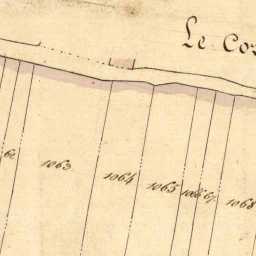 Le Co
62
1063
1064
1065
1066
67
1068